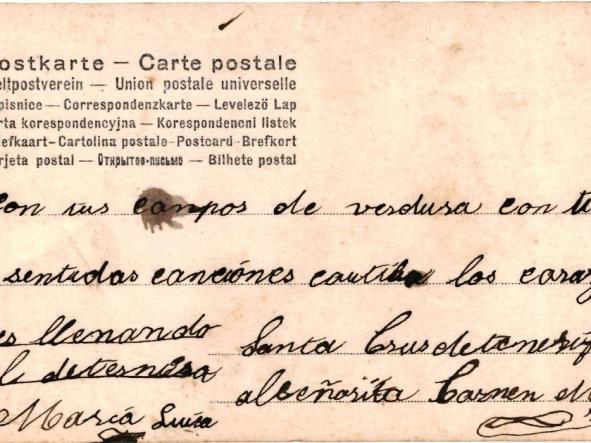 ostkarte — Carte postale
eltpostverein — Union postale universelle
pisnice — Correspondenzkarte — Levelező Lap
rta korespondencyjna — Korespondencni listek
efkaart - Cartolina postale - Postcard - Brefkort
rjeta postal — Открытое-письмо — Bilhete postal
Con tus campos de verdura con tu
sentidas canciónes los coraz
es llenando
de
María Luisa
Santa Crus de tenerif
al Señorita Carmen